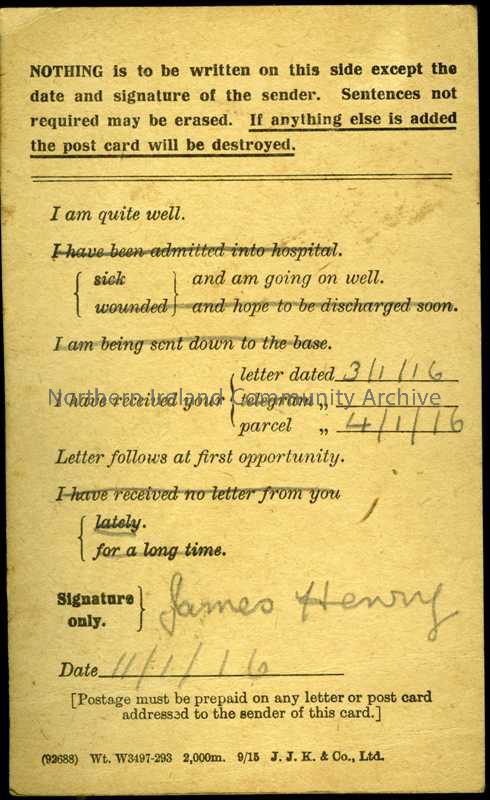 NOTHING is to be written on this side except the
date and signature of the sender. Sentences not
required may be erased. If anything else is added
the post card will be destroyed.
I am quite well.
I have been admitted into hospital.
sick } and am going on well.
wounded } and hope to be discharged soon.
I am being sent down to the base.
letter dated 3/1/16
Northern Ireland Community Archive
I have received your { telegram „
parcel „ 4/1/16
Letter follows at first opportunity.
I have received no letter from you
lately.
for a long time.
Signature
only. } James Henry
Date 11/1/16
[Postage must be prepaid on any letter or post card
addressed to the sender of this card.]
(92688) Wt. W3497-293 2,000m. 9/15 J. J. K. & Co., Ltd.